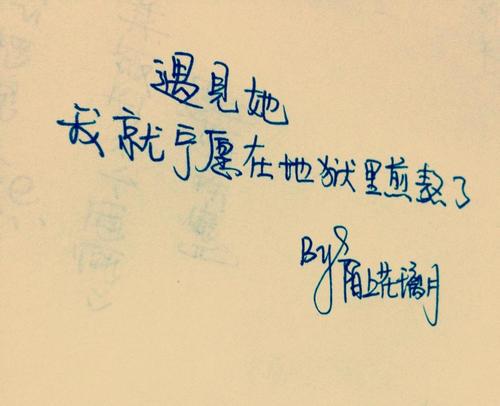 遇見她
我就宁愿在地狱里煎熬了
By 陌上花璃月